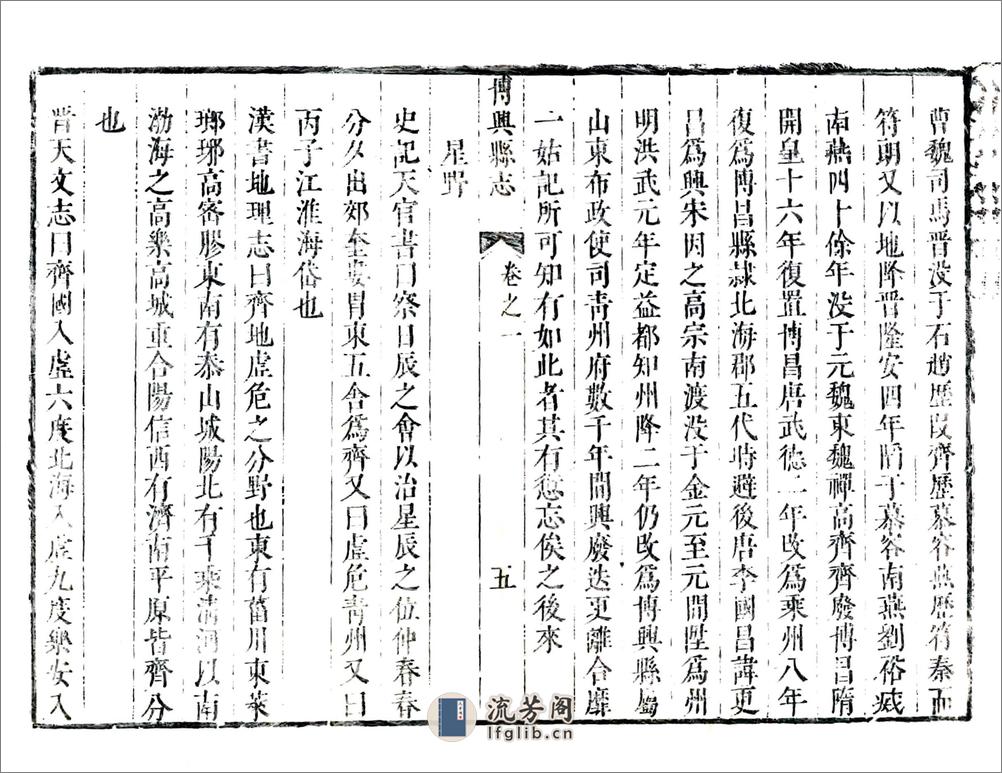 曹魏司馬晉没于石趙歷段齊歷慕容燕歷符秦而
符朗又以地降晉隆安四年陷于慕容南燕劉裕滅
南燕四十餘年没于元魏東魏禪高齊齊廢博昌隋
開皇十六年復置博昌唐武德二年改爲乘州八年
復爲博昌縣隷北海郡五代時避後唐李國昌諱更
昌爲興宋因之高宗南渡没于金元至元間陞爲州
明洪武元年定益都知州降二年仍改爲博興縣屬
山東布政使司青州府數千年間興廢迭更離合靡
一姑記所可知有如此者其有愆忘俟之後來
博興縣志 卷之一 五
星野
史記天官書曰察日辰之會以治星辰之位仲春春
分夕出郊奎婁胃東五舍爲齊又曰虛危青州又曰
丙子江淮海岱也
漢書地理志曰齊地虛危之分野也東有菑川東萊
瑯琊高密膠東南有泰山城陽北有千乘清河以南
渤海之高樂高城重合陽信西有濟南平原皆齊分
也
晉天文志曰齊國入虛六度北海入虛九度樂安入
流芳阁
lfglib.cn